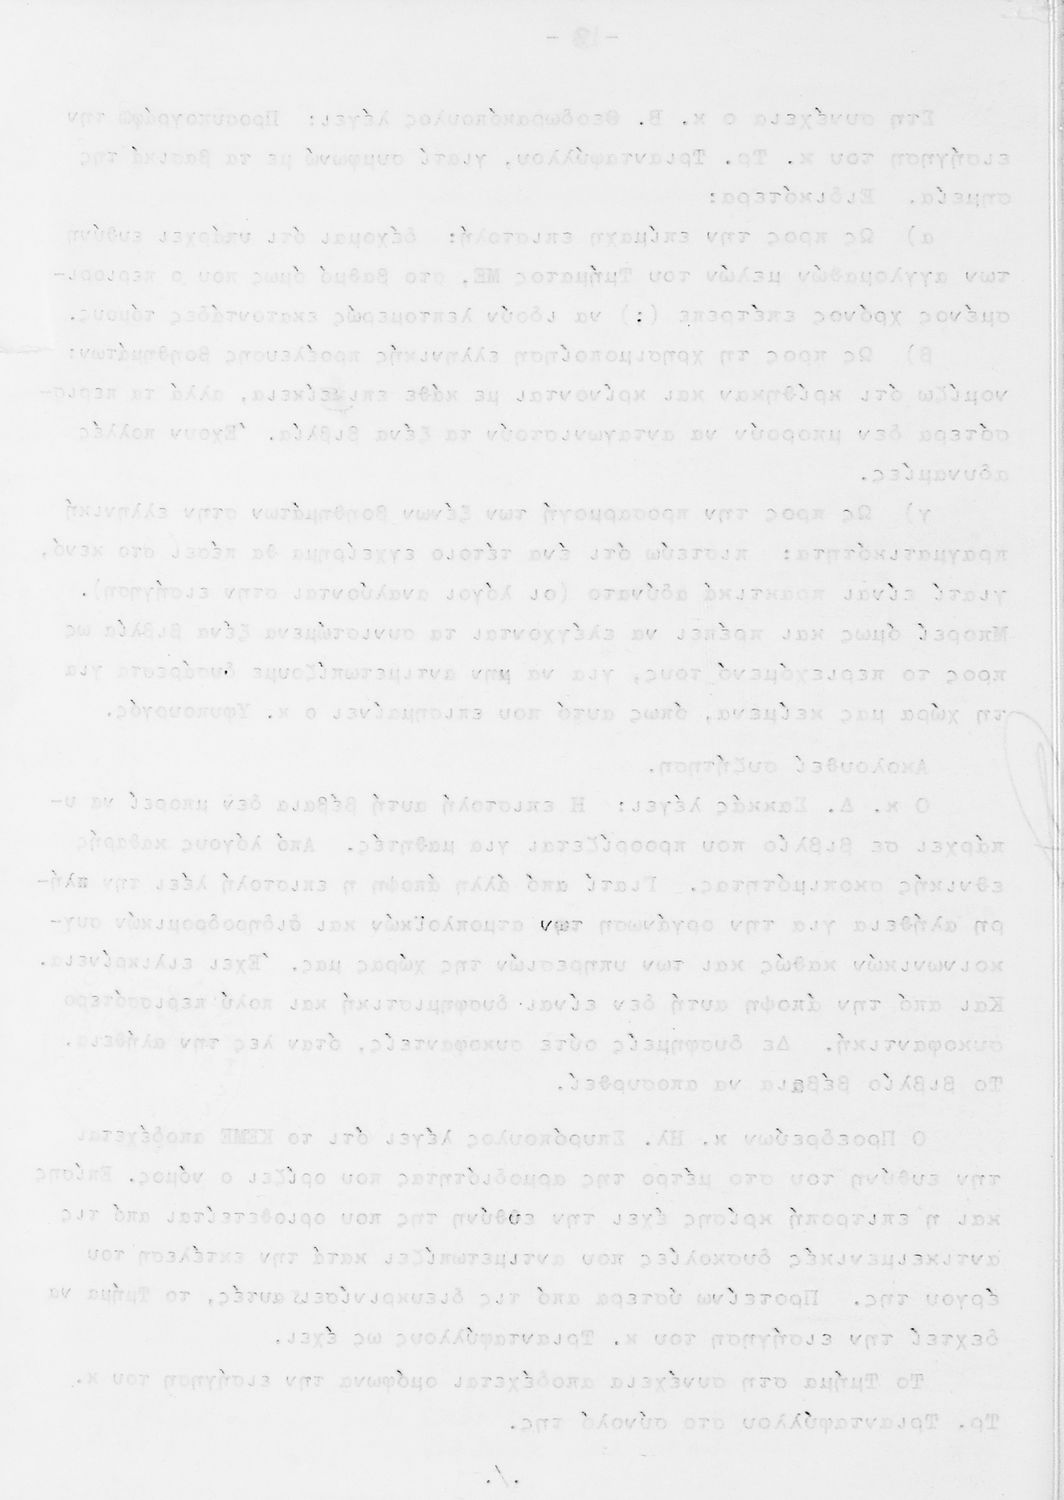 - 13 -
Στη συνέχεια ο κ. Β. Θεοδωρακόπουλος λέγει: Προσυπογράφω την
εισήγηση του κ. Τρ. Τριανταφύλλου, γιατί συμφωνώ με τα βασικά της
σημεία. Ειδικότερα:
α) Ως προς την επίμαχη επιστολή: δέχομαι ότι υπάρχει ευθύνη
των αγγλομαθών μελών του Τμήματος ΜΕ, στο βαθμό όμως που ο περιορι-
σμένος χρόνος επέτρεπε (;) να ιδούν λεπτομερώς εκατοντάδες τόμους.
β) Ως προς τη χρησιμοποίηση ελληνικής προέλευσης βοηθημάτων:
νομίζω ότι κρίθηκαν και κρίνονται με κάθε επιείκεια, αλλά τα περισ-
σότερα δεν μπορούν να ανταγωνιστούν τα ξένα βιβλία. Έχουν πολλές
αδυναμίες.
γ) Ως προς την προσαρμογή των ξένων βοηθημάτων στην ελληνική
πραγματικότητα: πιστεύω ότι ένα τέτοιο εγχείρημα θα πέσει στο κενό,
γιατί είναι πρακτικά αδύνατο (οι λόγοι αναλύονται στην εισήγηση).
Μπορεί όμως και πρέπει να ελέγχονται τα συνιστώμενα ξένα βιβλία ως
προς το περιεχόμενό τους, για να μην αντιμετωπίζουμε δυσάρεστα για
τη χώρα μας κείμενα, όπως αυτό που επισημαίνει ο κ. Υφυπουργός.
Ακολουθεί συζήτηση.
Ο κ. Δ. Σακκάς λέγει: Η επιστολή αυτή βέβαια δεν μπορεί να υ-
πάρχει σε βιβλίο που προορίζεται για μαθητές. Από λόγους καθαρής
εθνικής σκοπιμότητας. Γιατί από άλλη άποψη η επιστολή λέει την πλή-
ρη αλήθεια για την οργάνωση των ατμοπλοϊκών και σιδηροδρομικών συγ-
κοινωνικών καθώς και των υπηρεσιών της χώρας μας. Έχει ειλικρίνεια.
Και από την άποψη αυτή δεν είναι δυσφημιστική και πολύ περισσότερο
συκοφαντική. Δε δυσφημείς ούτε συκοφαντείς, όταν λες την αλήθεια.
Το βιβλίο βέβαια να αποσυρθεί.
Ο Προεδρεύων κ. Ηλ. Σπυρόπουλος λέγει ότι το ΚΕΜΕ αποδέχεται
την ευθύνη του στο μέτρο της αρμοδιότητας που ορίζει ο νόμος. Επίσης
και η επιτροπή κρίσης έχει την ευθύνη της που οριοθετείται από τις
αντικειμενικές δυσκολίες που αντιμετωπίζει κατά την εκτέλεση του
έργου της. Προτείνω ύστερα από τις διευκρινίσεις αυτές, το Τμήμα να
δεχτεί την εισήγηση του κ. Τριανταφύλλους ως έχει.
Το Τμήμα στη συνέχεια αποδέχεται ομόφωνα την εισήγηση του κ.
Τρ. Τριανταφύλλου στο σύνολό της.
./.